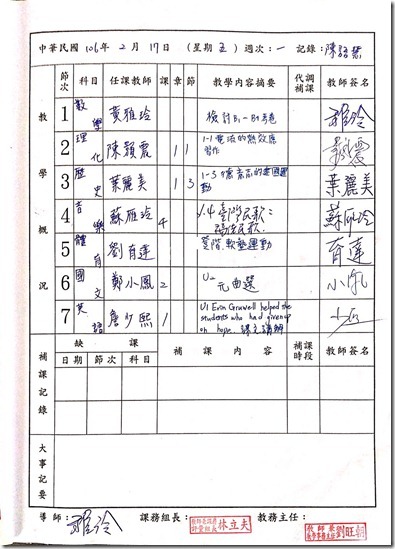 中華民國 106年 2月 17日 (星期五) 週次：一 記錄：陳
教學概況
節次 科目 任課教師 課 章 節 教學內容摘要 代調補課 教師簽名
1 數學 黃雅玲 檢討B1-B4考卷 雅玲
2 理化 陳顥震 1 1 1-1電流的熱效應 習作
3 歷史 葉麗美 1 3 1-3 葉麗美
4 音樂 蘇雁玲 4 4.4臺灣民歌： 蘇雁玲
5 體育 劉育達 軟墊運動 育達
6 國文 鄭小鳳 2 元曲選 小鳳
7 英語 唐少熙 1 U1 Erin Gruwell helped the
students who had given up
on hope. 課文講解
補課記錄
缺課 補課內容 補課時段 教師簽名
日期 節次 科目
大事記要
導師：雅玲 課務組長： 林立夫 教務主任： 劉旺朝